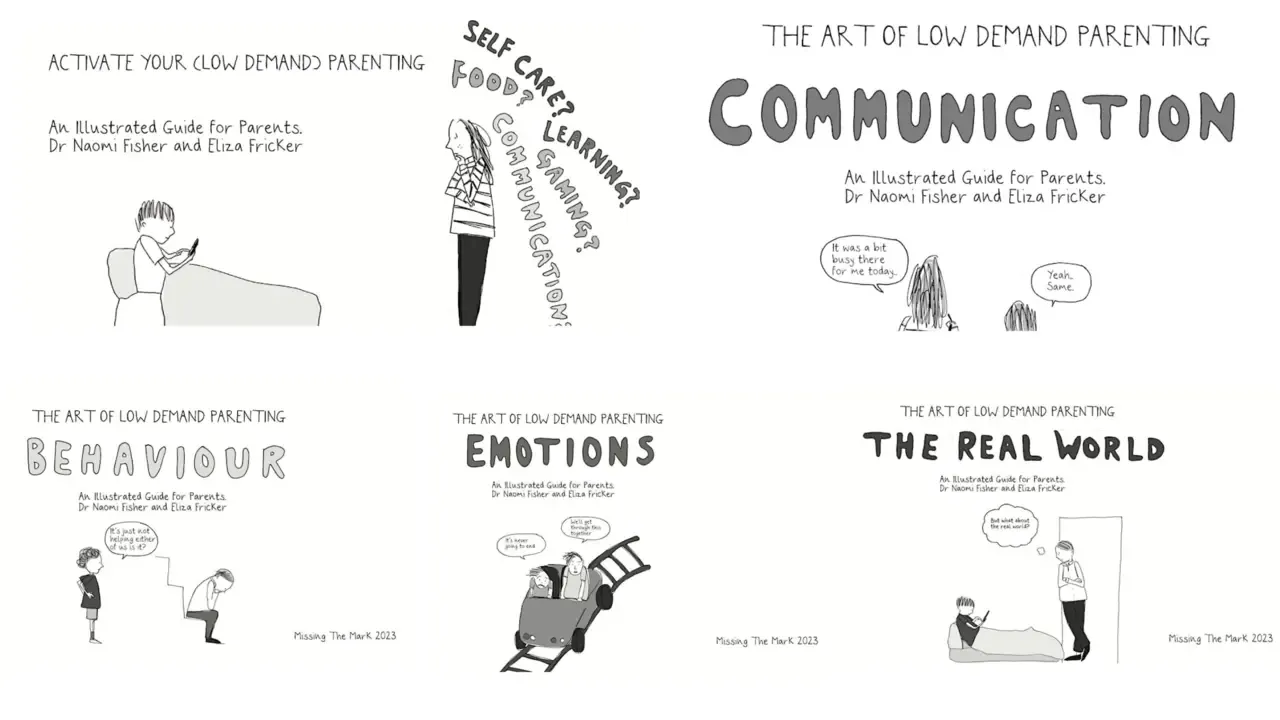 ACTIVATE YOUR (LOW DEMAND) PARENTING
An Illustrated Guide for Parents.
Dr Naomi Fisher and Eliza Fricker
SELF CARE?
FOOD?
LEARNING?
GAMING?
COMMUNICATION?
THE ART OF LOW DEMAND PARENTING
COMMUNICATION
An Illustrated Guide for Parents.
Dr Naomi Fisher and Eliza Fricker
It was a bit
busy there
for me today.
Yeah.
Same.
THE ART OF LOW DEMAND PARENTING
BEHAVIOUR
An Illustrated Guide for Parents.
Dr Naomi Fisher and Eliza Fricker
It's just not
helping either
of us is it?
Missing The Mark 2023
THE ART OF LOW DEMAND PARENTING
EMOTIONS
An Illustrated Guide for Parents.
Dr Naomi Fisher and Eliza Fricker
It's never
going to end
We'll get
through this
together
Missing The Mark 2023
THE ART OF LOW DEMAND PARENTING
THE REAL WORLD
An Illustrated Guide for Parents.
Dr Naomi Fisher and Eliza Fricker
But what about
the real world?
Missing The Mark 2023